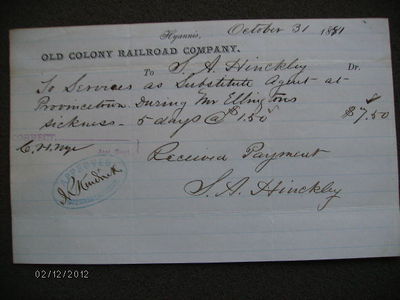 Hyannis, October 31 1881
OLD COLONY RAILROAD COMPANY.
To S. A. Hinckley Dr.
To Services as Substitute Agent at
Provincetown During Mr Ellingtons
sickness - 5 days @ $1.50 $7.50
CORRECT,
C. H. Nye
Received Payment
APPROVED
S. A. Hinckley
02/12/2012